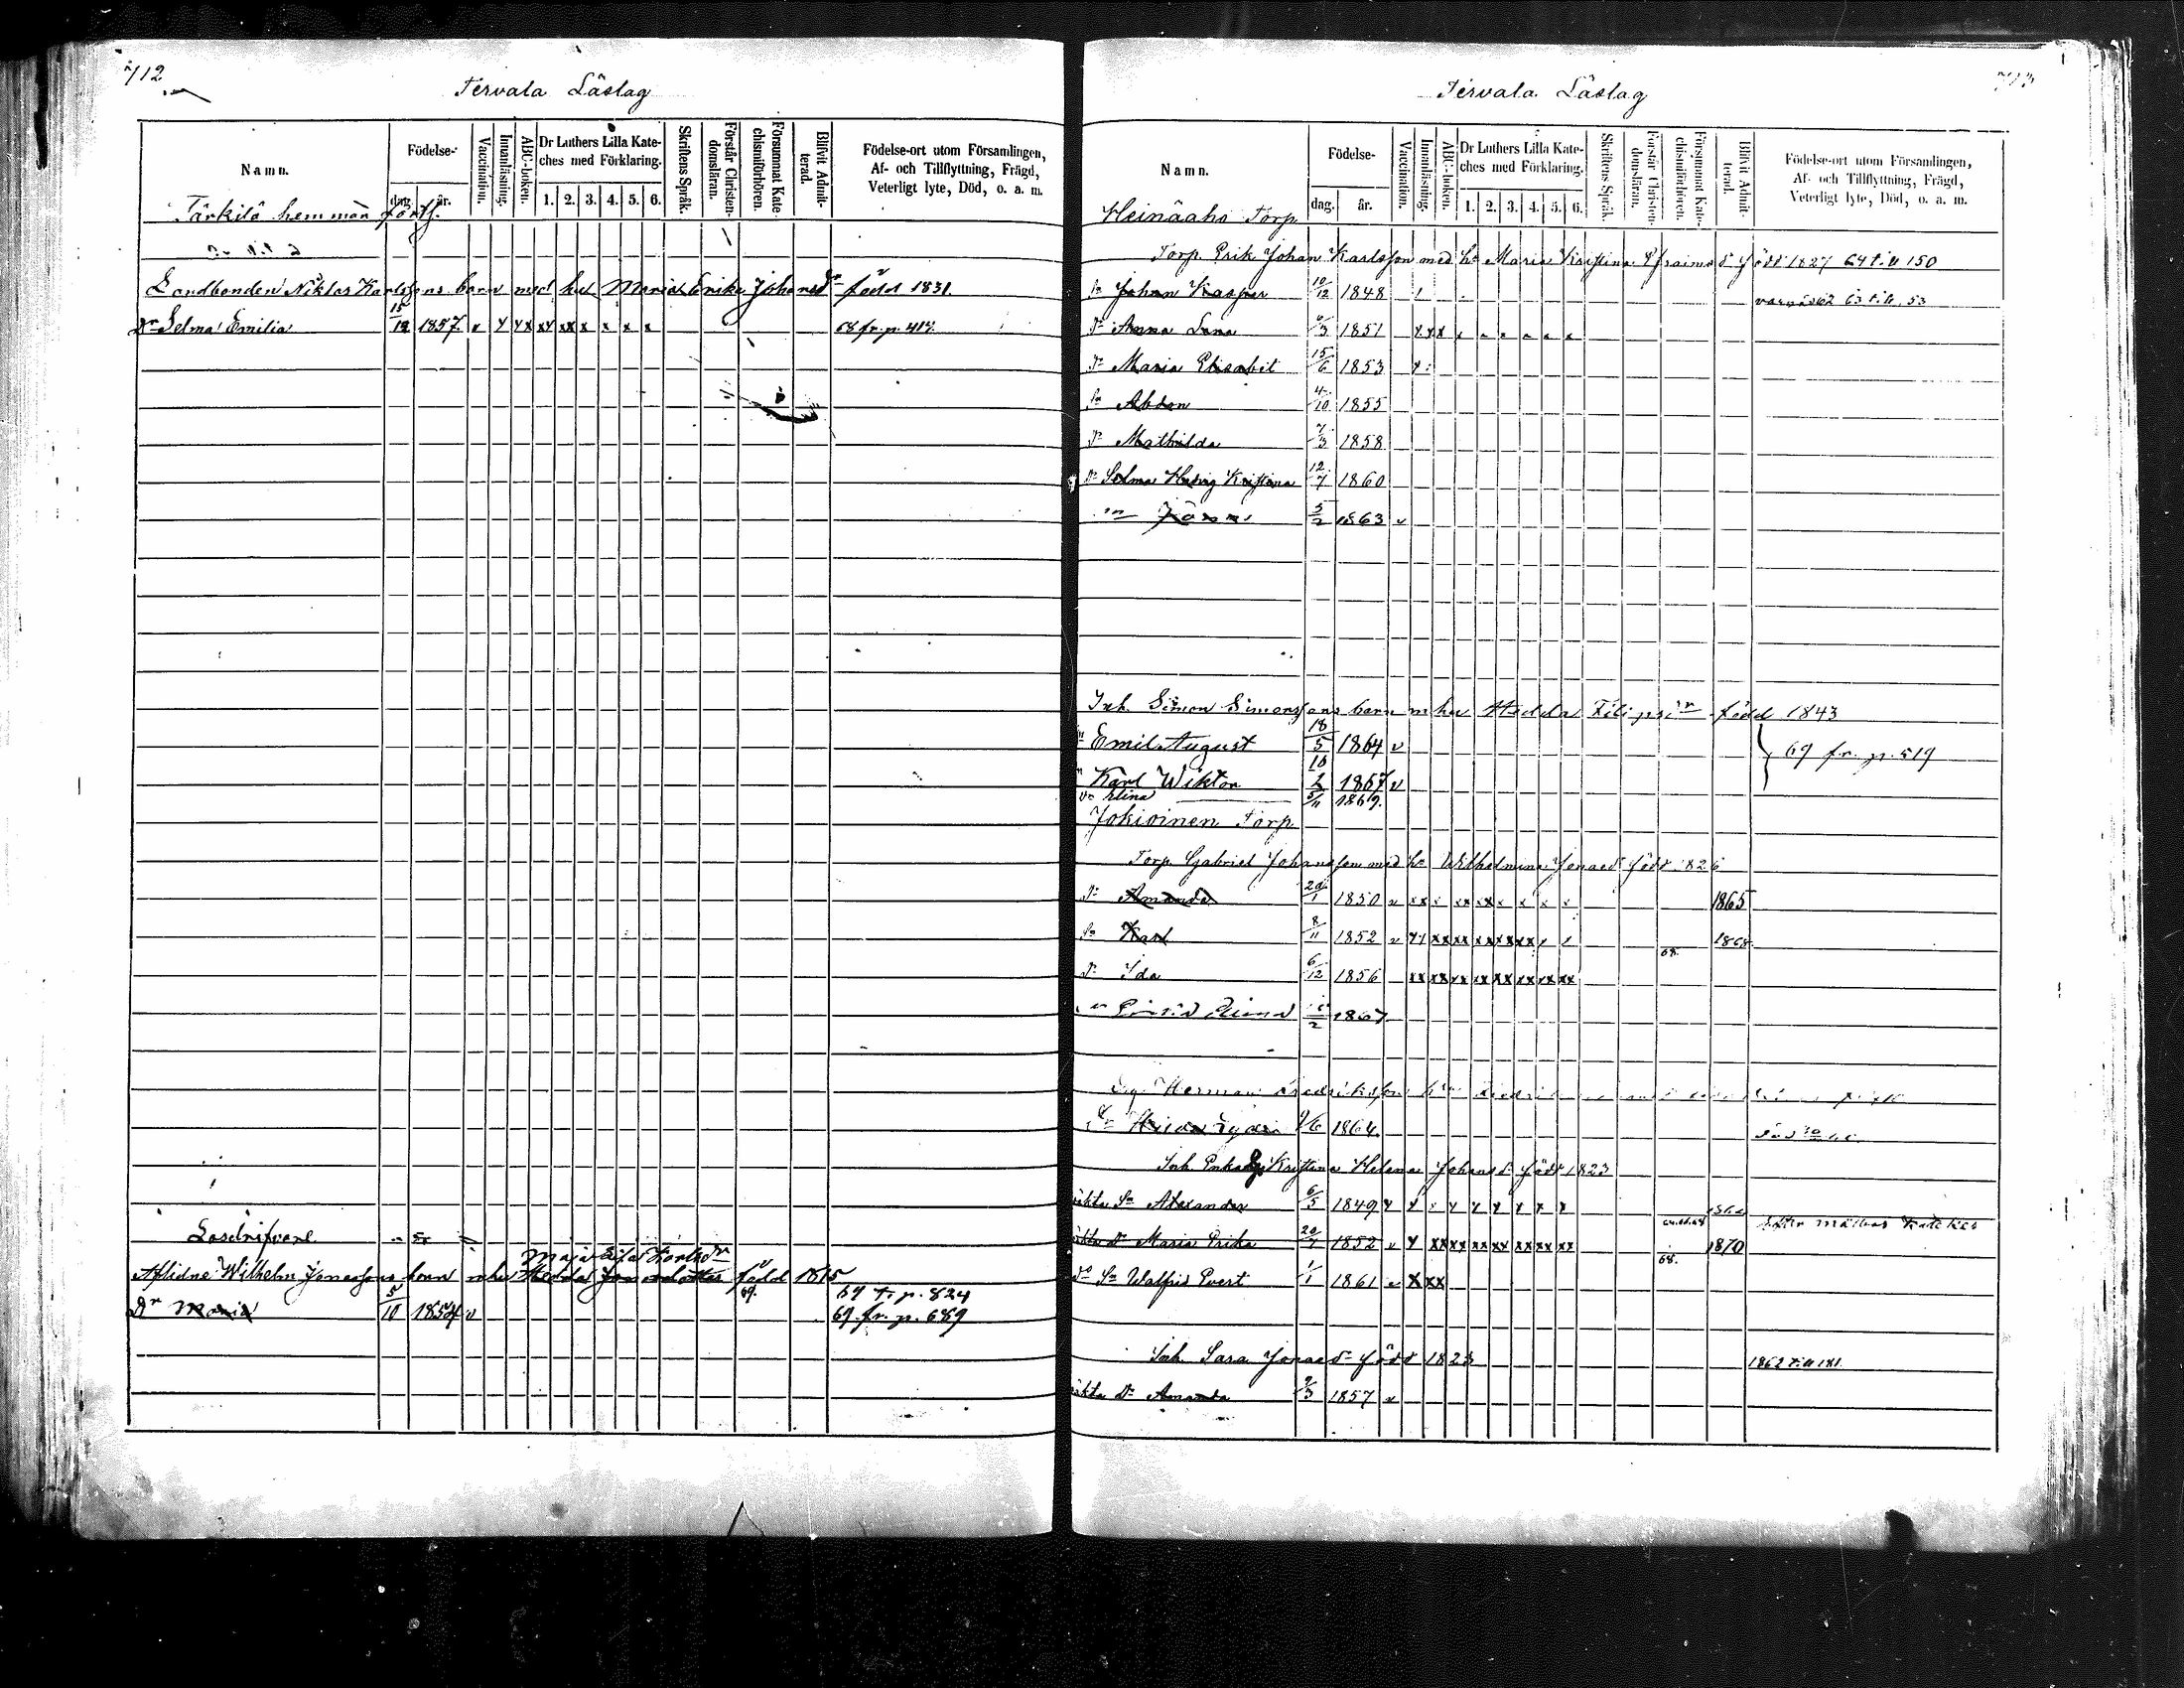 712
Tervala Läslag
Namn.
Födelse-
dag.
år.
Vaccination.
Innanläsning.
ABC-boken.
Dr Luthers Lilla Kate-
ches med Förklaring.
1. 2. 3. 4. 5. 6.
Skriftens Språk.
Förstår Christen-
domsläran.
Försummat Kate-
chismiförhören.
Blifvit Admit-
terad.
Födelse-ort utom Församlingen,
Af- och Tillflyttning, Frägd,
Veterligt lyte, Död, o. a. m.
Tärkilä hemman forts.
Landbonden Niklas Karlssons barn med hu Maria Erika Johansdr född 1831.
Dr Selma Emilia 15/12 1857 v x xx xx xx x x x x 68 fr. p. 414.
Lösdrifvare
Maja Lisa Karlsdr
Aflidne Wilhelm Jonassons barn mhu Hedda Jonasdotter född 1815
69. 69 t. p. 824
Dr Maria 5/10 1854 v 69. fr. p. 689
713
Tervala Läslag
Namn.
Födelse-
dag.
år.
Vaccination.
Innanläsning.
ABC-boken.
Dr Luthers Lilla Kate-
ches med Förklaring.
1. 2. 3. 4. 5. 6.
Skriftens Språk.
Förstår Christen-
domsläran.
Försummat Kate-
chismiförhören.
Blifvit Admit-
terad.
Födelse-ort utom Församlingen,
Af- och Tillflyttning, Frägd,
Veterligt lyte, Död, o. a. m.
Heinäaho Torp
Torp. Erik Johan Karlsson med hu Maria Kristina Efraimsd född 1827 64 till 150
Sn Johan Kasper 10/12 1848 63 till 53
Dr Anna Lena 1851 x x x
Dr Maria Elisabet 15/6 1853 x
Sn Abdon 4/10 1855
Dr Mathilda 7/3 1858
Dr Selma Hedvig Kristina 12/7 1860
5/2 1863 v
Inh. Simon Simonssons barn m hu Hedda Filipsdr född 1843
Sn Emil August 18/5 1864 v
69 fr. p. 519
Karl Wiktor 10/2 1867 v
Dr Elina 5/11 1869.
Jokioinen Torp
Torp. Gabriel Johansson med hu Wilhelmina Jonaed född 1826
Dr Amanda 20/1 1850 v xx x xx xx x x x 1865
Sn Karl 8/11 1852 v xx xx xx xx xx xx 68. 1868.
Dr Ida 6/12 1856 xx xx xx xx xx xx xx xx
1867
Herman Fredriksson
9/6 1864.
Inh. Enkan Kristina Helena Johansd född 1823
äkta Sn Alexander 6/5 1849 x x x x x x x x
äkta Dr Maria Erika 20/7 1852 v x xx xx xx xx xx xx xx 68. 1870
do Sn Walfrid Evert 1/1 1861 v x xx
Inh. Sara Jonaed född 1823 1862 till 181.
äkta Dr Amanda 9/3 1857 v